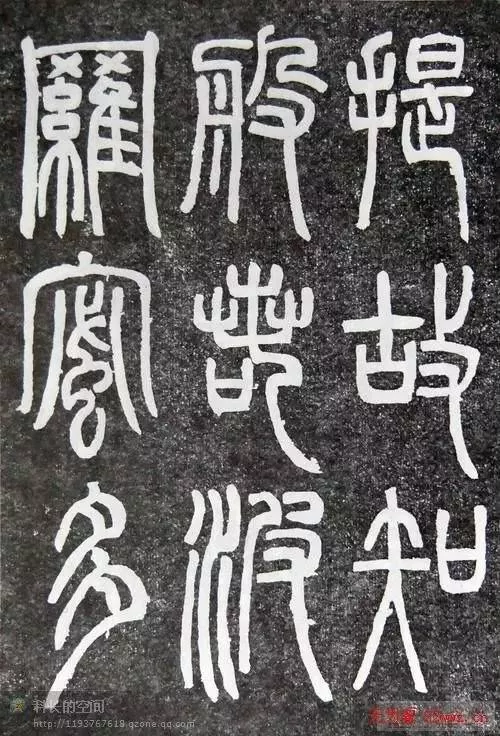 提故知
般若波
羅蜜多
科长的空间
http://1193767618.qzone.qq.com